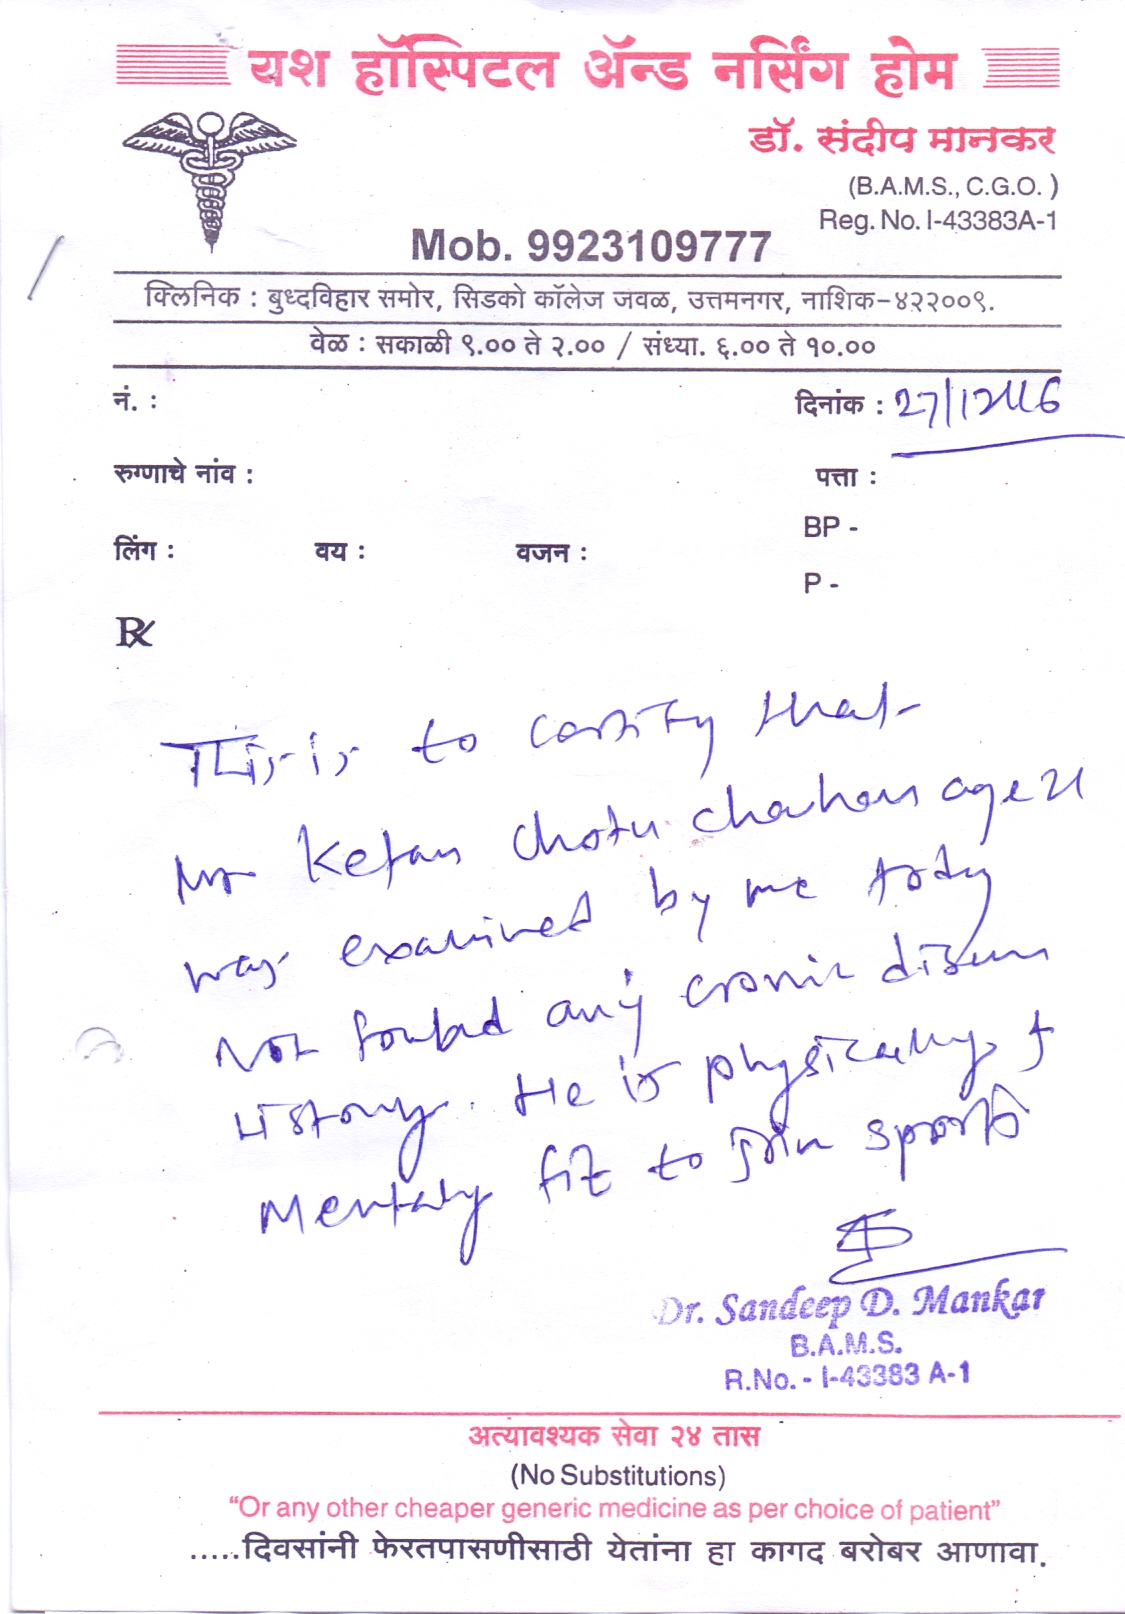 यश हॉस्पिटल ॲन्ड नर्सिंग होम
डॉ. संदीप मानकर
(B.A.M.S., C.G.O. )
Reg. No. I-43383A-1
Mob. 9923109777
क्लिनिक : बुध्दविहार समोर, सिडको कॉलेज जवळ, उत्तमनगर, नाशिक-४२२००९.
वेळ : सकाळी ९.०० ते २.०० / संध्या. ६.०० ते १०.००
नं. :
दिनांक :
रुग्णाचे नांव :
पत्ता :
BP -
लिंग : वय : वजन :
P -
℞
This is to certify that
Mr Ketan Chotu chauhan age 21
was examined by me today
Not found any cronic disease
History. He is physically &
Mentaly fit to join sports
Dr. Sandeep D. Mankar
B.A.M.S.
R.No. - I-43383 A-1
अत्यावश्यक सेवा २४ तास
(No Substitutions)
“Or any other cheaper generic medicine as per choice of patient”
.....दिवसांनी फेरतपासणीसाठी येतांना हा कागद बरोबर आणावा.